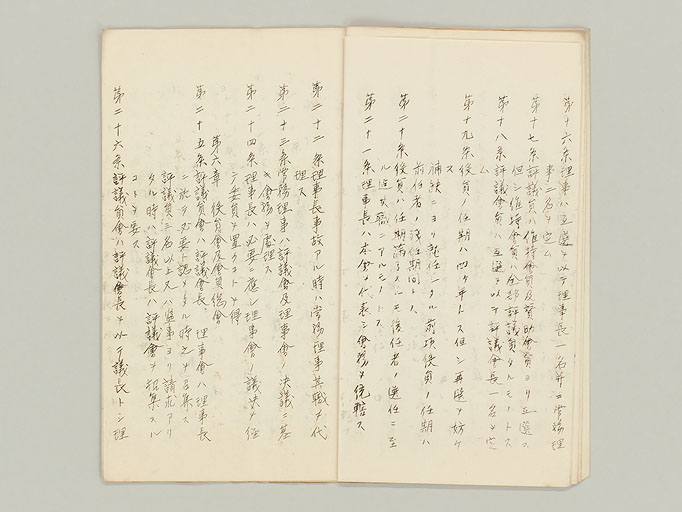 第十六条理事ハ互選ヲ以テ理事長一名并ニ常務理
事二名ヲ定ム
第十七条評議員ハ維持会員及賛助会員ヨリ互選ス
但シ維持会員ハ全部評議員タルモノトス
第十八条評議会員ハ互選ヲ以テ評議会長一名ヲ定
ム
第十九条役員ノ任期ハ四ケ年トス但シ再選ヲ妨ケ
ス
補缺ニヨリ就任シタル前項役員ノ任期ハ
前任者ノ残任期間トス
第二十条役員ハ任期満了スルモ後任者ノ選任ニ至
ル迄在職スルモノトス
第二十一条理事長ハ本会ヲ代表シ会務ヲ統轄ス
第二十二条理事長事故アル時ハ常務理事其職ヲ代
理ス
第二十三条常務理事ハ評議会及理事会ノ決議ニ基
キ会務ヲ處理ス
第二十四条理事長ハ必要ニ應シ理事会ノ議決ヲ経
テ委員ヲ置クコトヲ得
第六章 役員会及会員総会
第二十五条評議員会ハ評議会長、理事会ハ理事長
ニ於テ必要ト認メタル時之ヲ召集ス
評議員三名以上又ハ監事ヨリ請求アリ
タル時ハ評議会長ハ評議会ヲ招集スル
コトヲ要ス
第二十六条評議員会ハ評議会長ヲ以テ議長トシ理